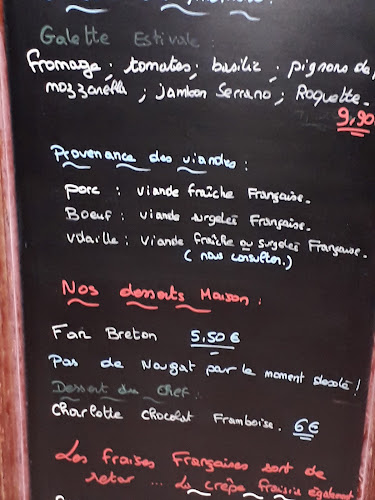 Galette Estivale :
fromage ; tomates ; basilic ; pignons de
mozzarella ; jambon Serrano ; Roquette.
9,90
Provenance des viandes :
porc : viande fraîche Française.
Boeuf : viande surgelés Française.
volaille : viande fraîche ou surgelés Française.
( nous consulter.)
Nos desserts Maison :
Far Breton 5,50€
Pas de Nougat par le moment désolé !
Dessert du Chef :
Charlotte chocolat Framboise. 6€
Les fraises Françaises sont de
retour ... La crêpe fraisie également